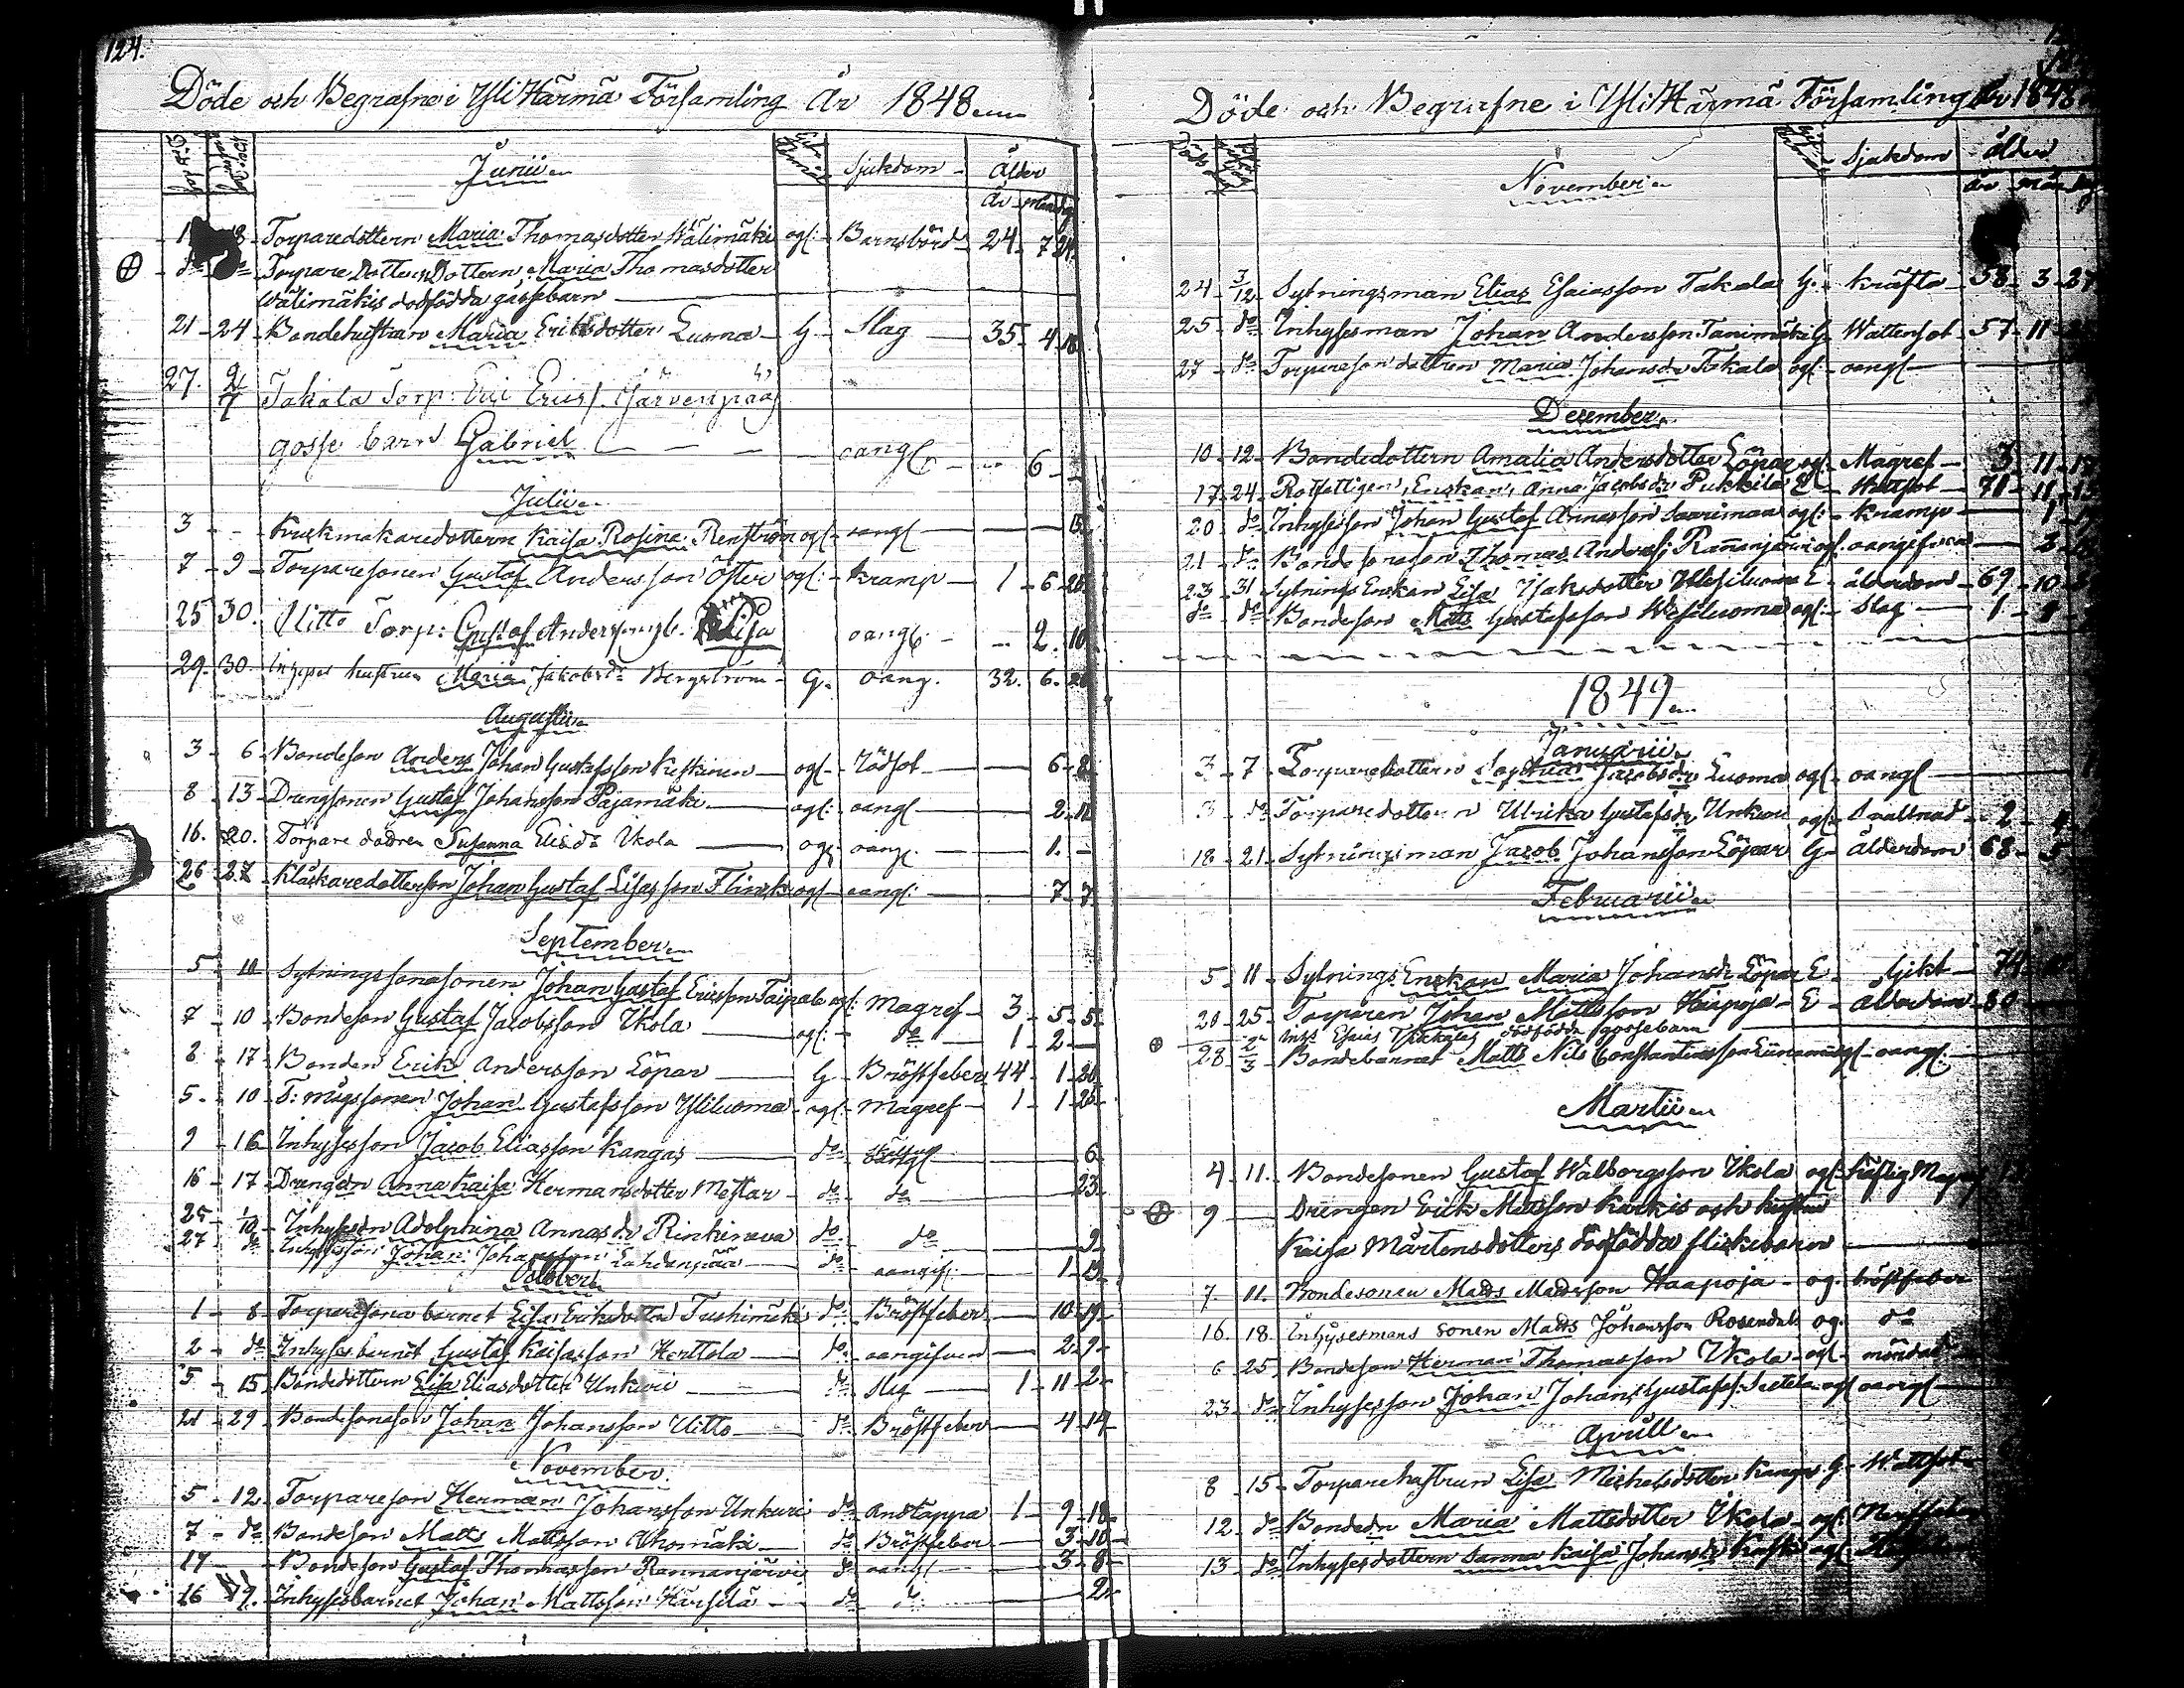 124.
Döde och Begrafne i Yli Härmä Församling År 1848
Junii
Sjukdom Ålder
År
18 Torparedottern Maria Thomasdotter Wälimäki ogl: Barnsbörd 24 7 24
do do Torpare Dotterns Dottern, Maria Thomasdotter
Wälimäkis dödfödda gåssebarn
21 24 Bondehustrun Maria Eriksdotter Luoma G Slag 35 4 18
27. 2/7 Takala Torp: Eric Ericss. Järvenpääs
gosse barn Gabriel oangl 6
Julii
3 Krukmakaredottern Kaisa Rosina Renström ogl oangl
7 9 Torparesonen Gustaf Andersson Öfter ogl: Kramp 1 6 26
25 30. Ulitto Torp: Gustaf Anderss Lisa oangl. 2. 10
29. 30. Inhyses hustrun Maria Jakobsdr Bergström G. oang. 32. 6. 26
Augustii
3 6 Bondeson Anders Johan Gustafsson Keskinen ogl Rödsot 6 2
8 13 Drengsonen Gustaf Johansson Pajamäki ogl: oangl 2 11
16. 20. Torpare dottren Susanna Elisdr Ekola ogl oang. 1.
26 27 Klåckaredotterson Johan Gustaf Lisasson Flinck ogl oangl: 7 7
September
5 10 Sytningssonasonen Johan Gustaf Ericsson Taipale ogl: Magref 3 5 5
7 10 Bondeson Gustaf Jacobsson Ekola ogl: do 1 2
8 17 Bonden Erik Andersson Löpar G Bröstfeber 44 1 20
5 10 T: mågssonen Johan Gustafsson Yliluoma ogl: Magref 1 1 26
9 16 Inhysesson Jacob Eliasson Kangas do oangl 6
16 17 Drengdr Anna Kaisa Hermansdotter Mestar do do 23
25 1/10 Inhysesdr Adolphina Annasdr Rinkineva do do 9
27 do Inhysesson Johan Johansson Lahdenpää do oangif: 1 13
October
1 8 Torparesona barnet Lisa Eriksdotter Tushimäki do Bröstfeber 10 19
2 do Inhyses barnet Gustaf Kaisasson Herttola do oangifven 2 9
5 15 Bondedottern Lisa Eliasdotter Unkuri do Slag 1 11 2
21 29 Bondesonason Johan Johansson Ulitto do Bröstfeber 4 14
November
5 12 Torpareson Herman Johansson Unkuri do Andtäppa 1 9 18
7 do Bondeson Matts Mattsson do Bröstfeber 3 10
14 Bondeson Gustaf Thomasson Rannanjärvi do oangl 3 8
16 19. Inhysesbarnet Johan Mattsson Härsilä do do 2
Döde och Begrafne i Yli Härmä Församling År 1848
Sjukdom Ålder
November
24 3/12 Sytningsman Elias Esaiasson Takala G. Kräfta 58 3 27
25 do Inhysesman Johan Andersson Tanimäki G Wattensot 57 11
27 do Torpareson dottren Maria Johansdr Takala ogl oangl
December
10 12 Bondedottern Amalia Andersdotter Löpar ogl Magref 3 11
17 24 Rotfattigen, Enskan, Anna Jacobsdr Pukkila E Wattsot 71 11 13
20 do Inhysesson Johan Gustaf Annasson Saarimaa ogl: Kramp 1
21 do Bondesonason Thomas Anderss Rannanjärvi ogl. oangifven 3
23 31 Sytnings Enskan Lisa Isaksdotter Wesiluoma E ålderdom 69 10
do do Bondeson Matts Gustafsson Wesiluoma ogl: Slag 1 1
1849
Januarii
3 7 Torparedottern Sophia Jacobsdr Luoma ogl oangl
3 do Torparedottern Ulrika Gustafsdr Unkuri ogl Svallnad 2
18 21 Sytningsman Jacob Johansson Löpar G ålderdom 68 5
Februarii
5 11 Sytnings Enskan Maria Johansdr Löpar E Gikt 74
20 25 Torparen Johan Mattsson Haapoja E ålderdom 80
Inhs Esaias Tikkalas dödfödda gossebarn
28 2/3 Bondebarnet Matts Nils Constantinsson Liinamaa ogl oangl.
Martii
4 11. Bondesonen Gustaf Walborgsson Ekola ogl häftig Mag
9 Drängen Erik Mattsson Karkis och hustru
Kaisa Mårtensdotters dödfödda flickebarn
7. 11. Bondesonen Matts Mattsson Haapoja og. bröstfeber
16. 18. Inhysesmans sonen Matts Johansson Rosendal og. do
6 25 Bondeson Herman Thomasson Ekola ogl
23 do Inhysesson Johan Johan Gustafss: ogl oangl
Aprill
8 15 Torparehustrun Lisa Michelsdotter Kangas G Wattsot
12 do Bondedr Maria Mattsdotter Ekola ogl: Nerffeber
13 do Inhysesdottern Sanna Kaisa Johansdr ogl